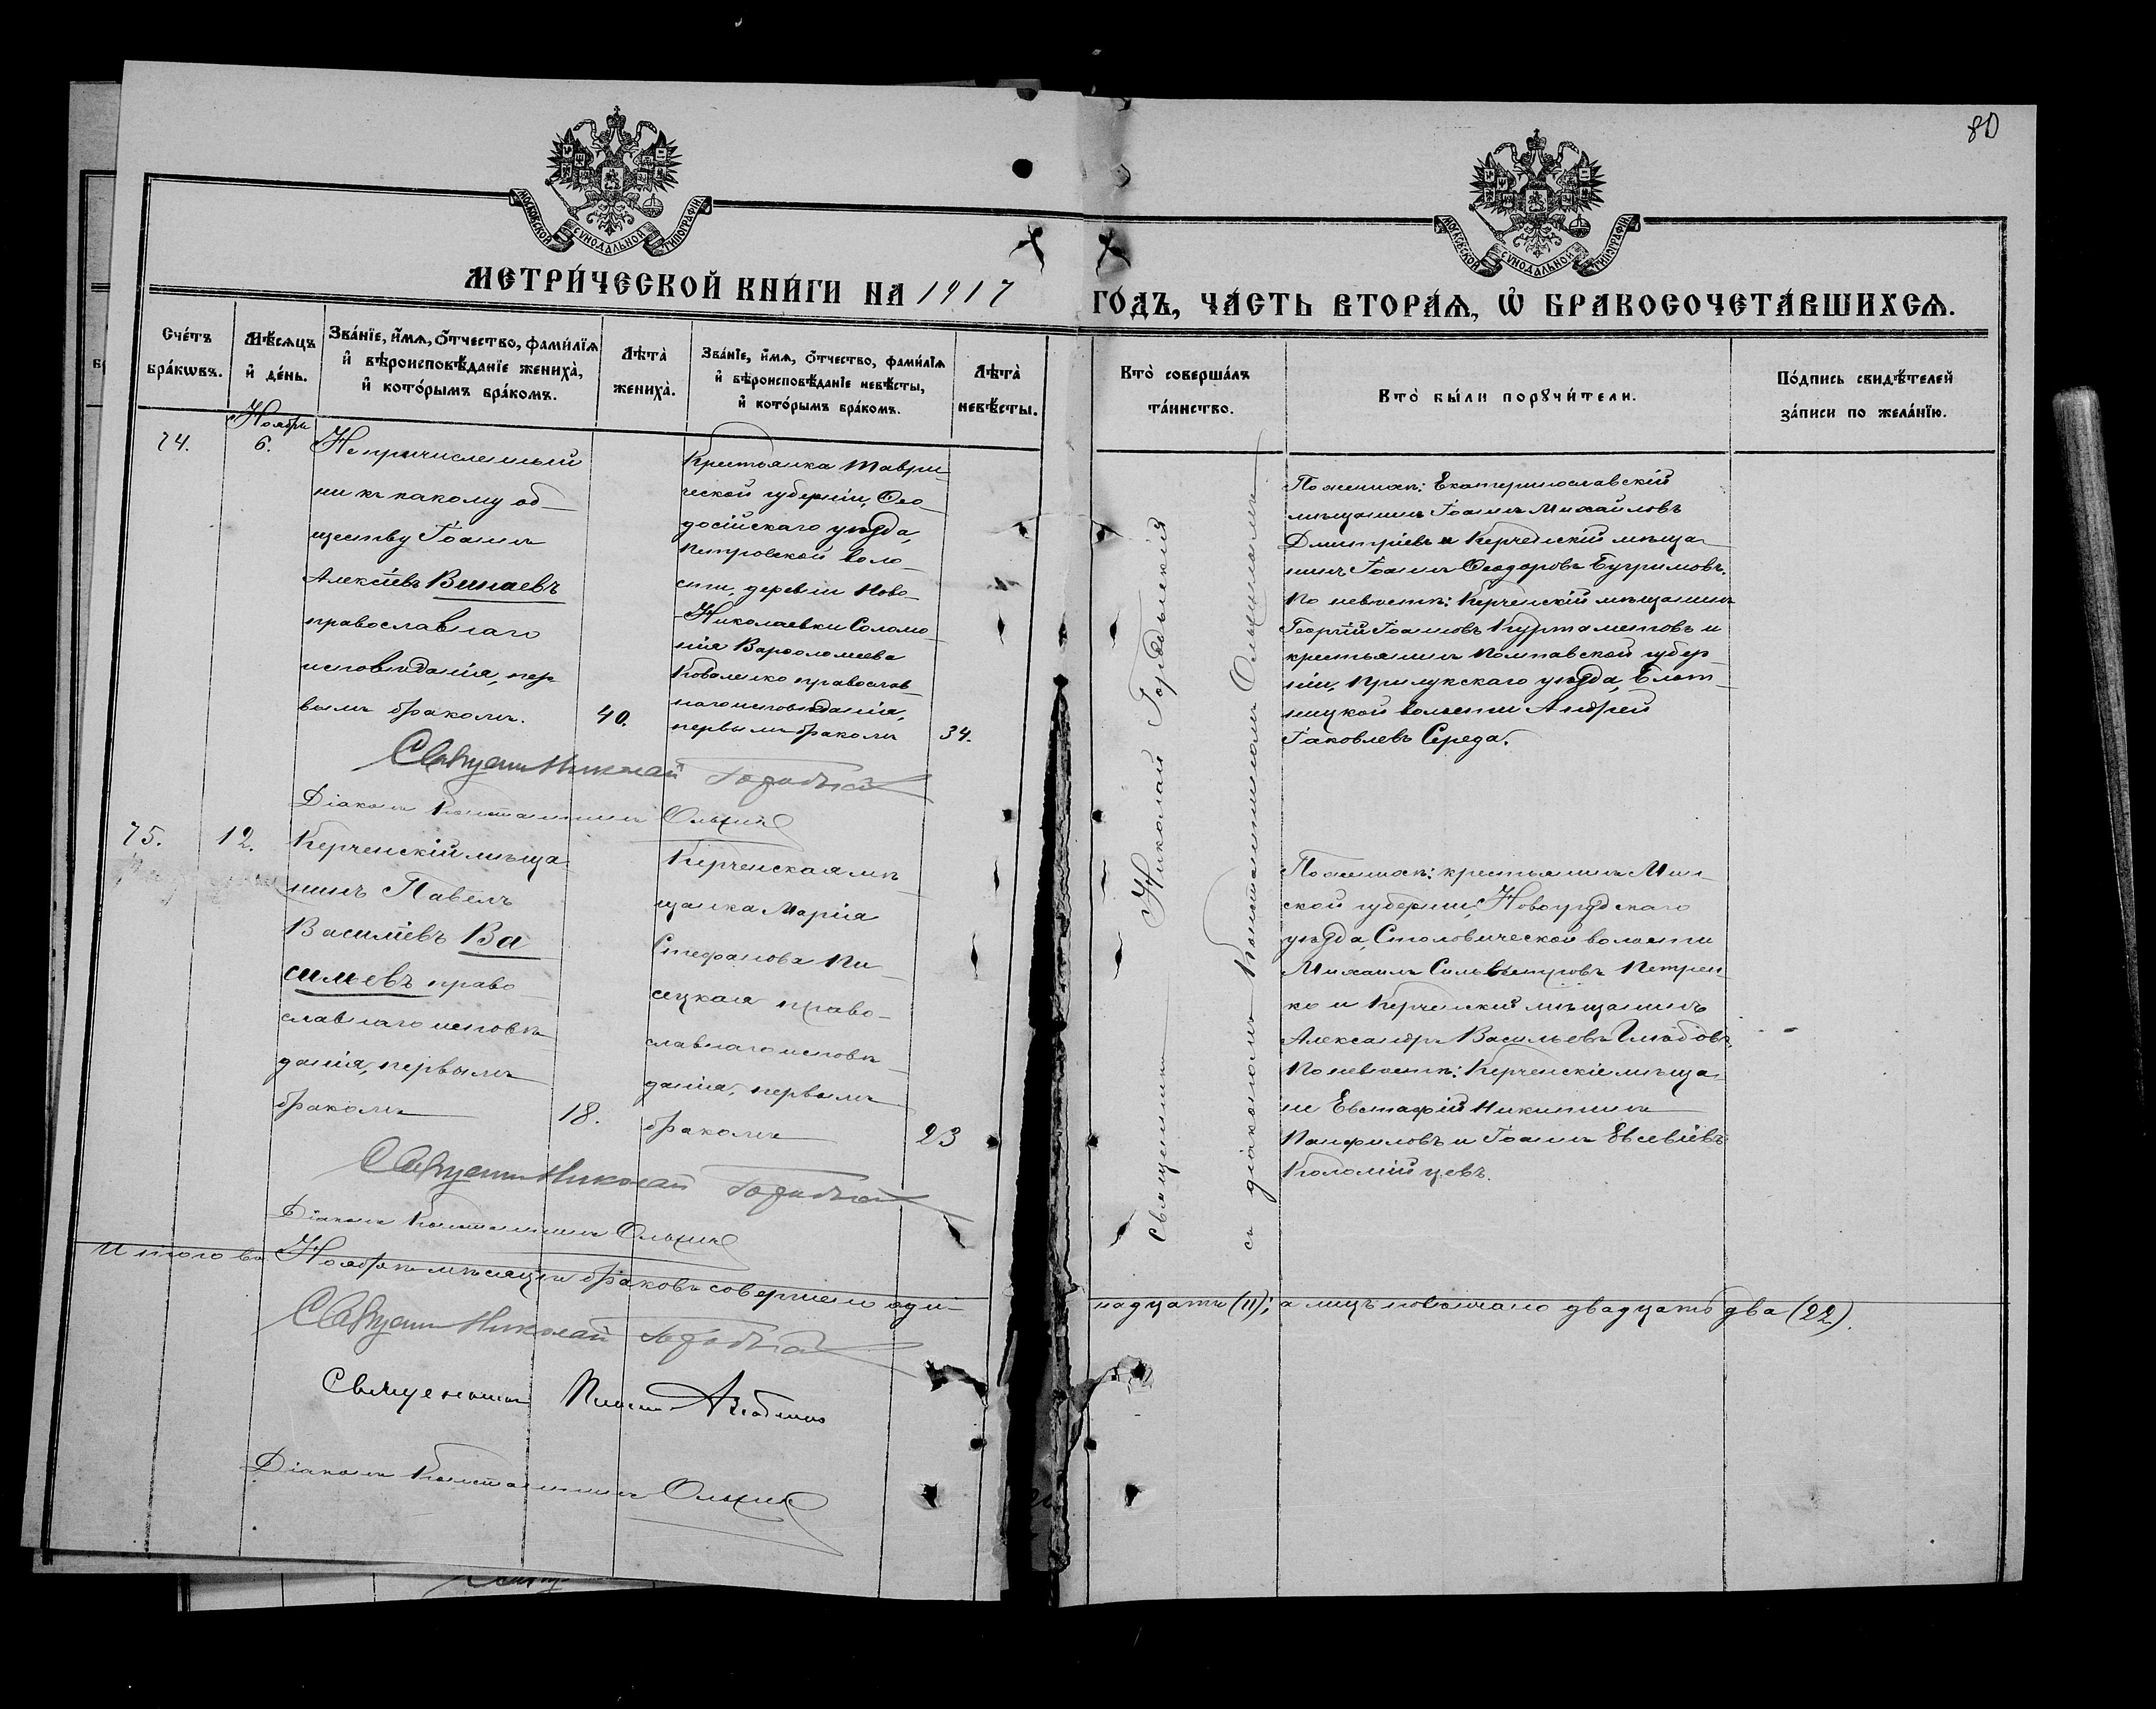 80
МОСКОВСКОЙ СѴНОДАЛЬНОЙ ТИПОГРАФІИ
МОСКОВСКОЙ СѴНОДАЛЬНОЙ ТИПОГРАФІИ
МЕТРИ́ЧЕСКОЙ КНИ́ГИ НА 1917
ГО́ДЪ, ЧА́СТЬ ВТОРА́Ѧ, Ѡ҆ БРАКОСОЧЕТА́ВШИХСѦ.
Сче́тъ
бра́кѡвъ.
Мѣ́сѧцъ
и҆ де́нь.
Зва́нїе, и҆́мѧ, ѻ҆́тчество, фами́лїѧ
и҆ вѣроисповѣ́данїе жениха̀,
и҆ кото́рымъ бра́комъ.
Лѣта̀
жениха̀.
Зва́нїе, и҆́мѧ, ѻ҆́тчество, фами́лїѧ
и҆ вѣроисповѣ́данїе невѣ́сты,
и҆ кото́рымъ бра́комъ.
Лѣта̀
невѣ́сты.
Кто̀ соверша́лъ
та́инство.
Кто̀ бы́ли порꙋчи́тели.
По́дпись свидѣ́телей
за́писи по жела́нїю.
74.
Ноябрь
6.
Непричисленный
ни къ какому об-
ществу Іоаннъ
Алексіевъ Винаевъ
православнаго
исповѣданія, пер
вымъ бракомъ.
40.
Крестьянка Таври-
ческой губерніи, Ѳео-
досійскаго уѣзда,
Петровской воло-
сти, деревни Ново-
Николаевки Соломо-
нія Варѳоломеева
Коваленко православ-
наго исповѣданія,
первымъ бракомъ
34.
Священникъ Николай Городыскій
съ діакономъ Константиномъ
По женихѣ: Екатеринославскій
мѣщанинъ Іоаннъ Михайловъ
Дмитріевъ и Керченскій мѣща-
нинъ Іоаннъ Ѳеодоровъ Бугримовъ.
По невѣстѣ: Керченскій мѣщанинъ
Георгій Іоанновъ Куртаметовъ и
крестьянинъ Полтавской губер-
ніи, Прилукскаго уѣзда,
волости Андрей
Іаковлевъ Середа.
Священникъ Николай
Діаконъ Константинъ
75.
12.
Керченскій мѣща
нинъ Павелъ
Василіевъ Ва
сильевъ право-
славнаго исповѣ-
данія, первымъ
бракомъ
18.
Керченская мѣ-
щанка Марія
Стефанова Пи-
сецкая право-
славнаго исповѣ-
данія, первымъ
бракомъ
23
По женихѣ: крестьянинъ Мин-
ской губерніи, Новогрудскаго
уѣзда, Столовической волости
Михаилъ Сильвестровъ Петрен-
ко и Керченскій мѣщанинъ
Александръ Васильевъ
По невѣстѣ: Керченскіе мѣща-
не Евстафій Никитинъ
Панфиловъ и Іоаннъ Евсевіевъ
Коломійцевъ.
Священникъ Николай
Діаконъ Константинъ
Итого въ Ноябрѣ мѣсяцѣ браковъ совершено оди-
надцать (11); а лицъ повѣнчано двадцать два (22).
Священникъ Николай
Священникъ
Діаконъ Константинъ